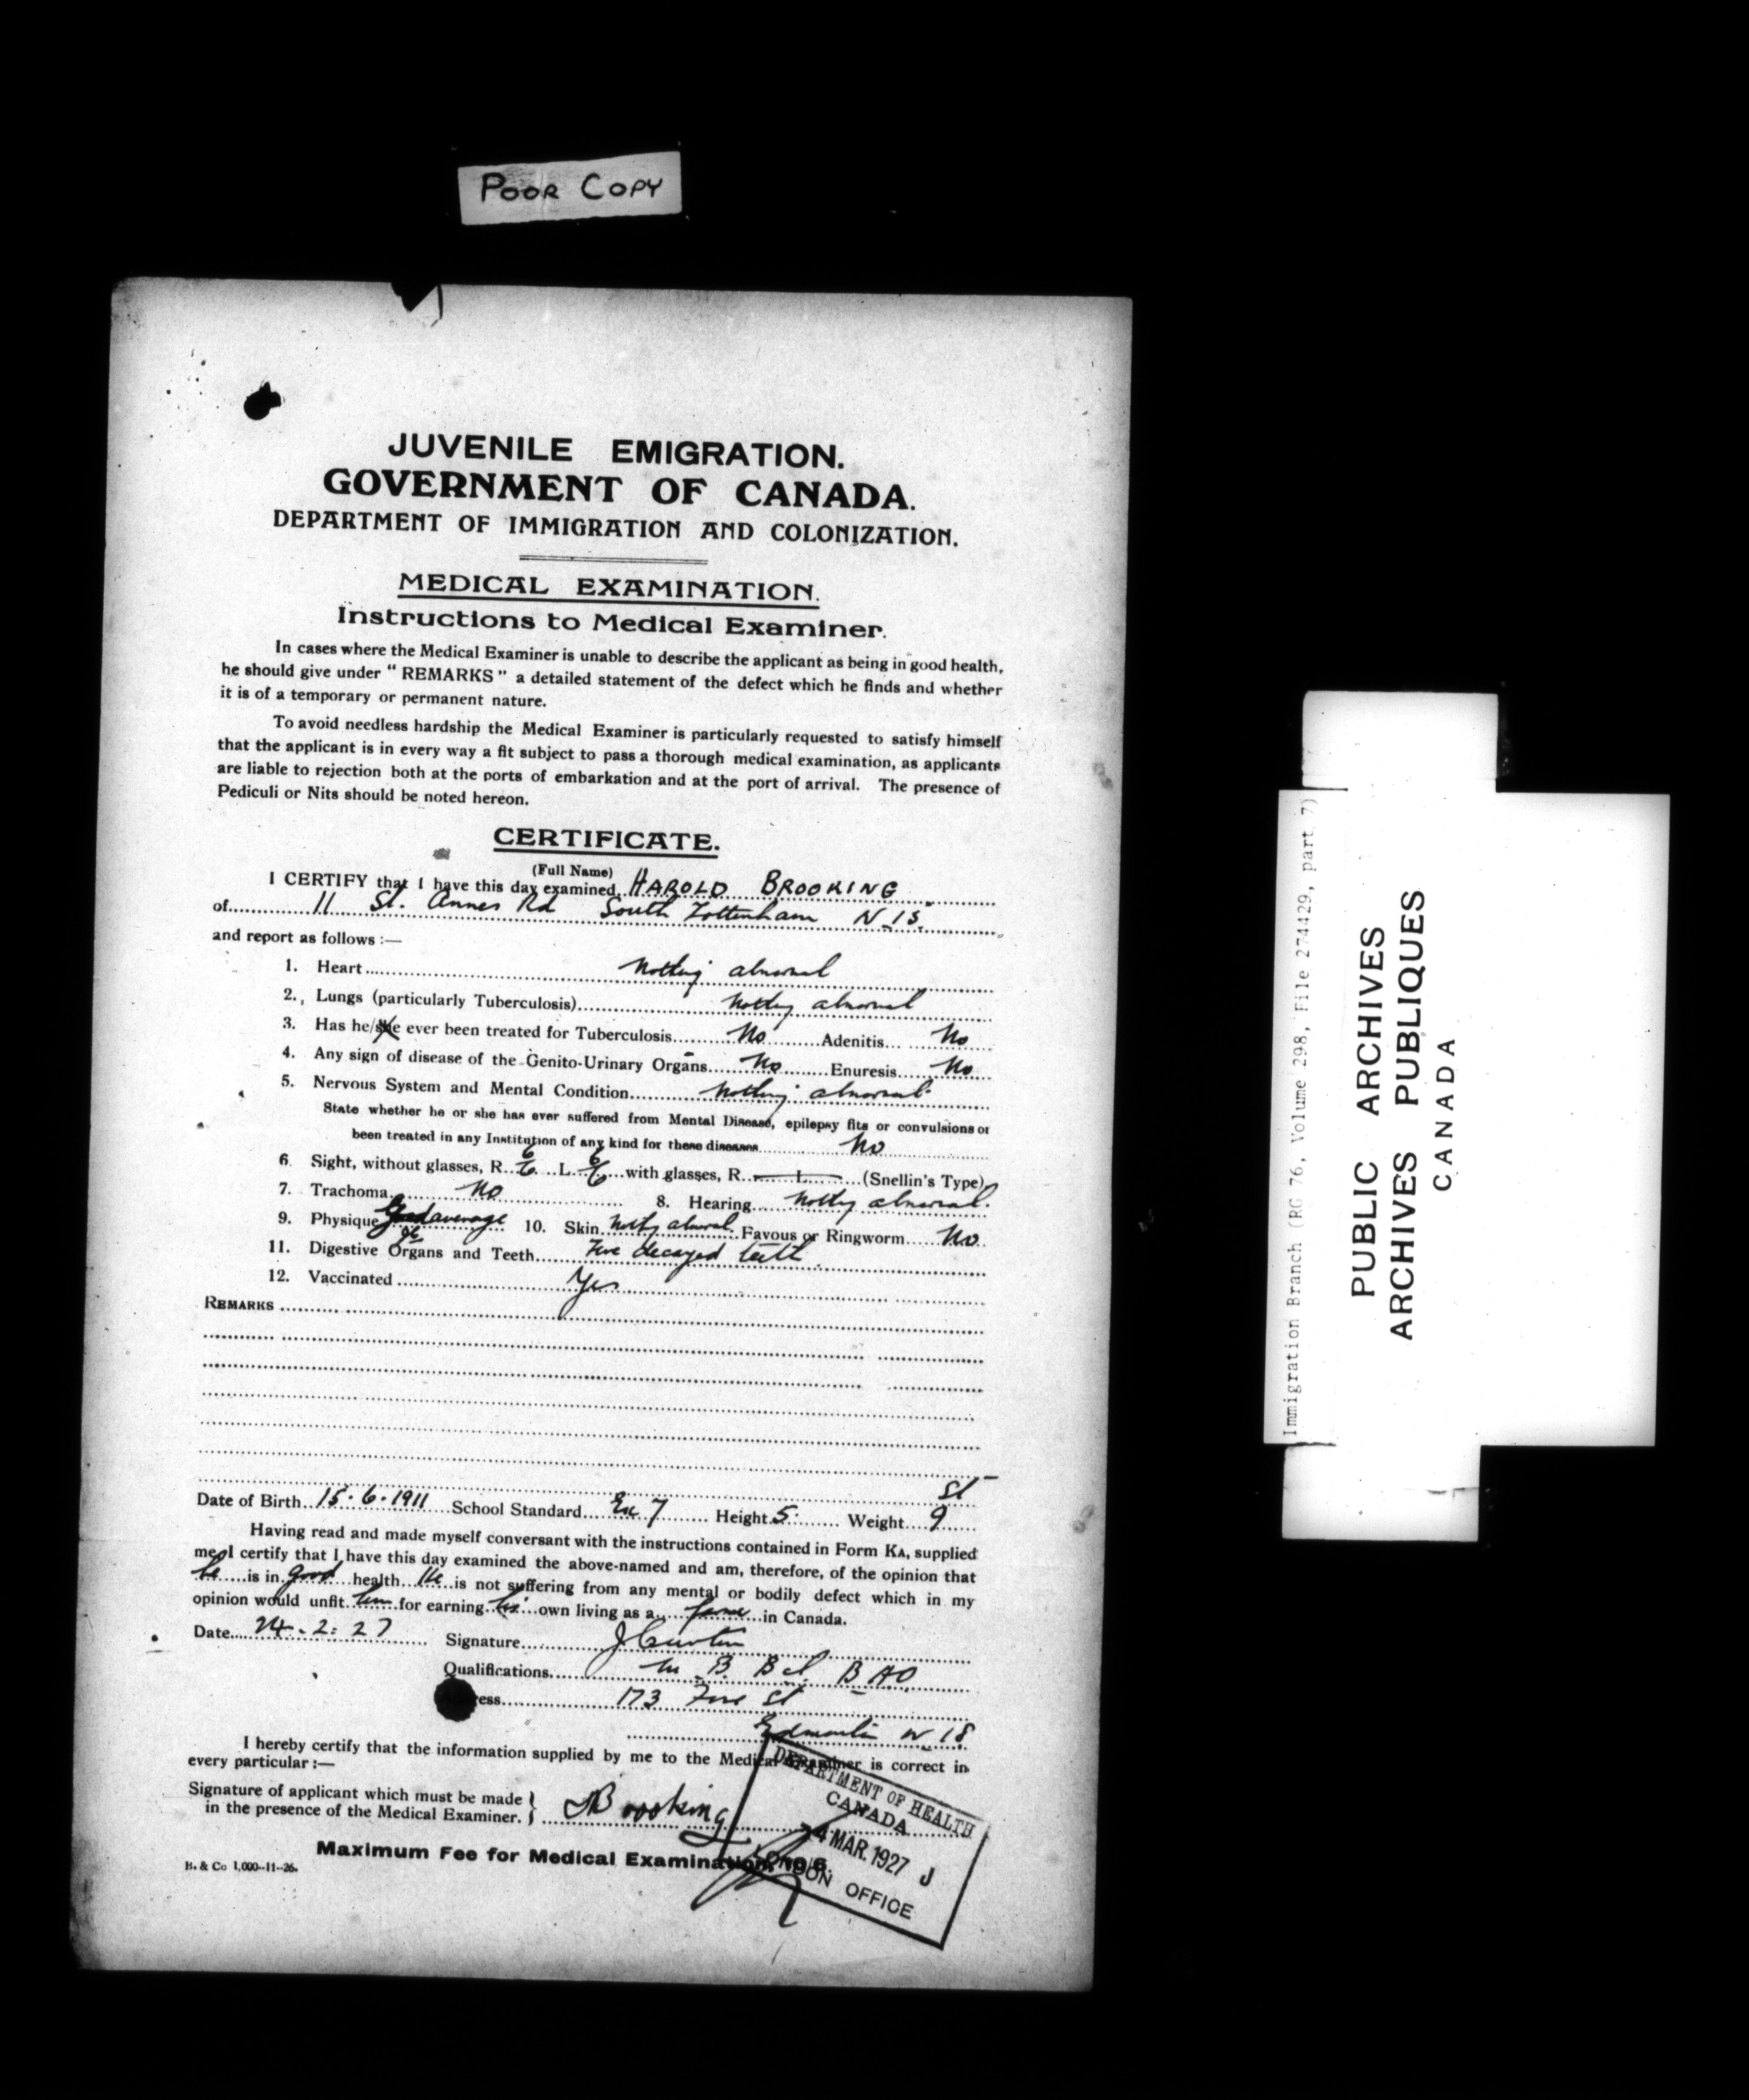 POOR COPY
JUVENILE EMIGRATION.
GOVERNMENT OF CANADA.
DEPARTMENT OF IMMIGRATION AND COLONIZATION.
MEDICAL EXAMINATION.
Instructions to Medical Examiner.
In cases where the Medical Examiner is unable to describe the applicant as being in good health,
he should give under "REMARKS" a detailed statement of the defect which he finds and whether
it is of a temporary or permanent nature.
To avoid needless hardship the Medical Examiner is particularly requested to satisfy himself
that the applicant is in every way a fit subject to pass a thorough medical examination, as applicants
are liable to rejection both at the ports of embarkation and at the port of arrival. The presence of
Pediculi or Nits should be noted hereon.
CERTIFICATE.
(Full Name)
I CERTIFY that I have this day examined HAROLD BROOKING
of 11 St. Annes Rd South Tottenham N 15.
and report as follows :—
1. Heart Nothing abnormal
2. Lungs (particularly Tuberculosis) Nothing abnormal
3. Has he/she ever been treated for Tuberculosis No Adenitis No
4. Any sign of disease of the Genito-Urinary Organs No Enuresis No
5. Nervous System and Mental Condition Nothing abnormal
State whether he or she has ever suffered from Mental Disease, epilepsy fits or convulsions or
been treated in any Institution of any kind for these diseases No
6. Sight, without glasses, R. 6/6 L. 6/6 with glasses, R. — L. — (Snellin's Type)
7. Trachoma No 8. Hearing Nothing abnormal.
9. Physique Good average 10. Skin Nothing abnormal. Favous or Ringworm No
11. Digestive Organs and Teeth decayed teeth.
12. Vaccinated Yes
REMARKS
Date of Birth 15.6.1911 School Standard Ex 7 Height 5 Weight 9 St
Having read and made myself conversant with the instructions contained in Form KA, supplied
me, I certify that I have this day examined the above-named and am, therefore, of the opinion that
he is in good health He is not suffering from any mental or bodily defect which in my
opinion would unfit him for earning his own living as a in Canada.
Date 24.2.27 Signature
Qualifications M B. B Ch. B AO
ess 173 Fore St
Edmonton N 18
I hereby certify that the information supplied by me to the Medical Examiner is correct in
every particular :—
Signature of applicant which must be made
in the presence of the Medical Examiner. HBrooking
Maximum Fee for Medical Examination,
B. & Co 1,000--11--26.
DEPARTMENT OF HEALTH
CANADA
4 MAR. 1927 J
LONDON OFFICE
Immigration Branch (RG 76, Volume 298, File 274429, part 7)
PUBLIC ARCHIVES
ARCHIVES PUBLIQUES
CANADA